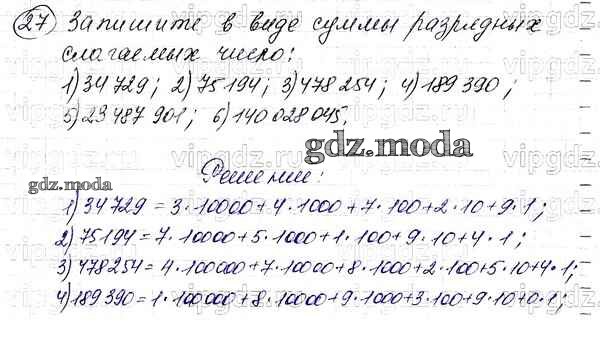 27 Запишите в виде суммы разрядных
слагаемых число:
1) 34 729; 2) 75 194; 3) 478 254; 4) 189 390;
5) 23 487 901; 6) 140 028 045.
gdz.moda
Решение:
gdz.moda
1) 34 729 = 3·10000+4·1000+7·100+2·10+9·1;
2) 75194 = 7·10000+5·1000+1·100+9·10+4·1;
3) 478254 = 4·100000+7·10000+8·1000+2·100+5·10+4·1;
4) 189 390 = 1·100000+8·10000+9·1000+3·100+9·10+0·1;